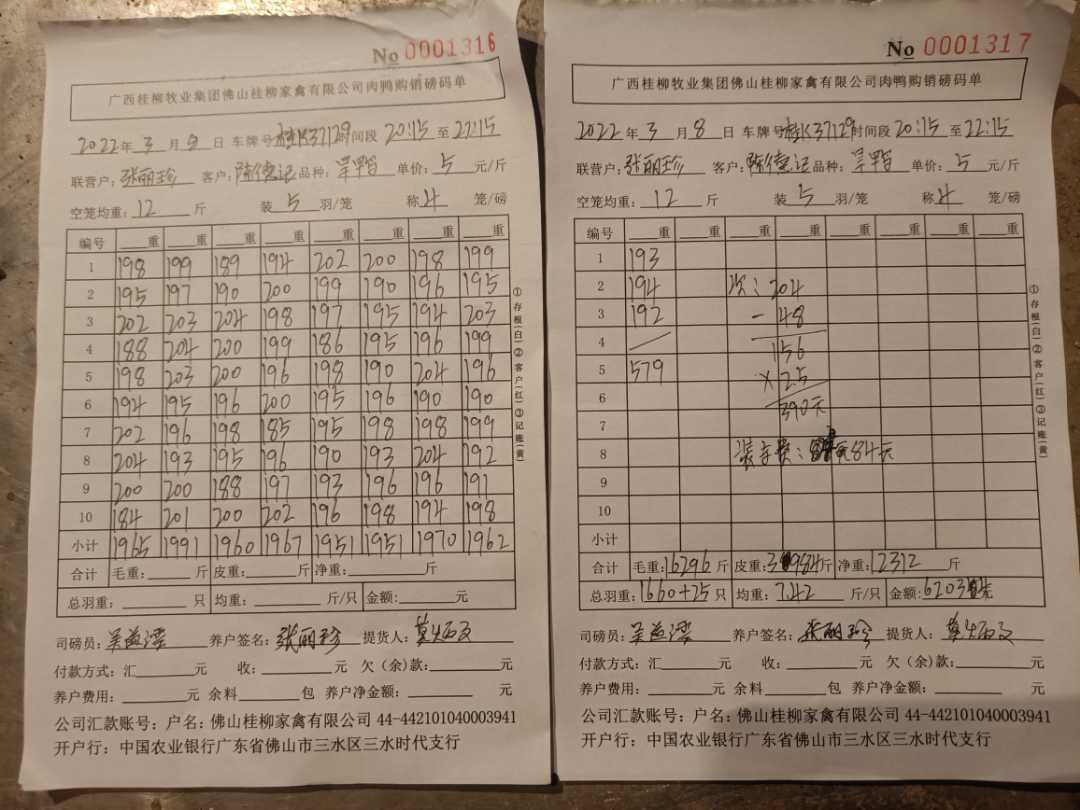 No 0001316
广西桂柳牧业集团佛山桂柳家禽有限公司肉鸭购销磅码单
2022年3月9日 车牌号 桂K37129 时间段 20:15 至 22:15
联营户：张丽珍 客户：陈德记 品种： 单价：5 元/斤
空笼均重：12 斤 装 5 羽/笼 称 4 笼/磅
编号 重 重 重 重 重 重 重 重
1 198 199 189 194 202 200 198 199
2 195 197 190 200 199 190 196 195
3 202 203 204 198 197 195 194 203
4 188 204 200 199 186 195 196 199
5 198 203 200 196 198 190 204 196
6 194 195 196 200 195 196 190 190
7 202 196 198 185 195 198 198 199
8 204 193 195 196 190 193 204 192
9 200 200 188 197 193 196 196 191
10 184 201 200 202 196 198 194 198
小计 1965 1991 1960 1967 1951 1951 1970 1962
合计 毛重： 斤 皮重： 斤 净重： 斤
总羽重： 只 均重： 斤/只 金额： 元
司磅员： 养户签名：张丽珍 提货人：
付款方式：汇 元 收： 元 欠（余）款： 元
养户费用： 元 余料 包 养户净金额： 元
公司汇款账号：户名：佛山桂柳家禽有限公司 44-442101040003941
开户行：中国农业银行广东省佛山市三水区三水时代支行
①存根(白)②客户(红)③记账(黄)
No 0001317
广西桂柳牧业集团佛山桂柳家禽有限公司肉鸭购销磅码单
2022年3月8日 车牌号 桂K37129 时间段 20:15 至 22:15
联营户：张丽珍 客户：陈德记 品种： 单价：5 元/斤
空笼均重：12 斤 装 5 羽/笼 称 4 笼/磅
编号 重 重 重 重 重 重 重 重
1 193
2 194 次：204
3 192 -48
4 156
5 579 ×2.5
6 390元
7
8 装车费：84元
9
10
小计
合计 毛重：16296 斤 皮重：3984 斤 净重：12312 斤
总羽重：1660+25 只 均重：7.42 斤/只 金额：
司磅员： 养户签名：张丽珍 提货人：
付款方式：汇 元 收： 元 欠（余）款： 元
养户费用： 元 余料 包 养户净金额： 元
公司汇款账号：户名：佛山桂柳家禽有限公司 44-442101040003941
开户行：中国农业银行广东省佛山市三水区三水时代支行
①存根(白)②客户(红)③记账(黄)